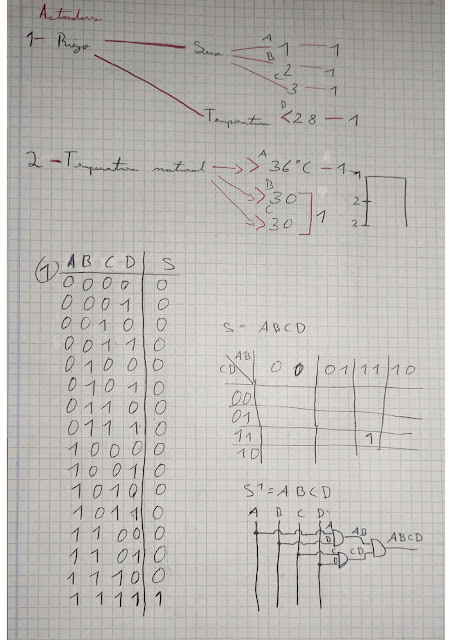 Actuadores
1- Riego Seco A 1 - 1
B 2 - 1
C 3 - 1
Temperatura D <28 - 1
2 - Temperatura natural A >36°C - 1
B >30
C >30 1
1
2
3
1 A B C D S
0 0 0 0 0
0 0 0 1 0
0 0 1 0 0
0 0 1 1 0
0 1 0 0 0
0 1 0 1 0
0 1 1 0 0
0 1 1 1 0
1 0 0 0 0
1 0 0 1 0
1 0 1 0 0
1 0 1 1 0
1 1 0 0 0
1 1 0 1 0
1 1 1 0 0
1 1 1 1 1
S = ABCD
AB
CD 0 0 01 11 10
00
01
11 1
10
S1 = ABCD
A B C D
A
B AB
C
D CD
ABCD